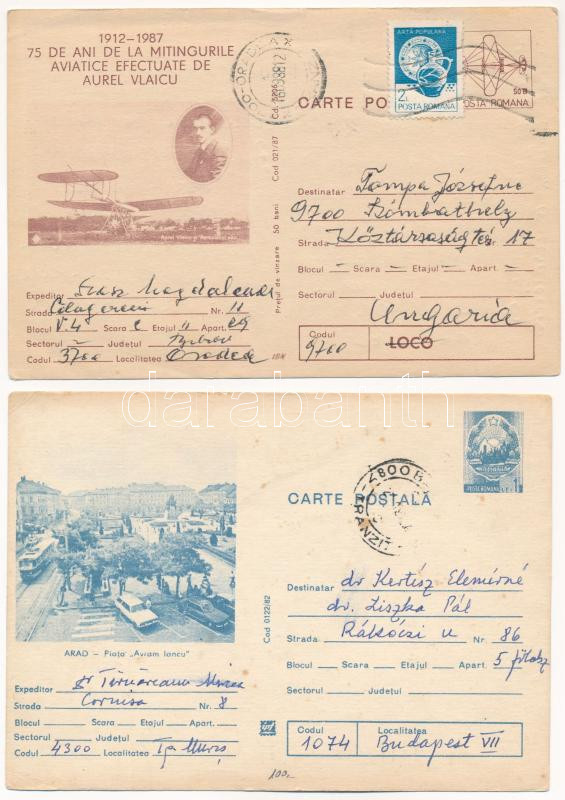 1912-1987
75 DE ANI DE LA MITINGURILE
AVIATICE EFECTUATE DE
AUREL VLAICU
Aurel Vlaicu
ARTĂ POPULARĂ
2L
POSTA ROMANA
50 B
POSTA ROMANA
CARTE PO
Cod 021/87
Prețul de vînzare 50 bani
Destinatar Tompa Józsefne
9700 Szombathely
Strada Köztársaság tér 17
Blocul – Scara – Etajul – Apart. –
Sectorul Județul
Ungaria
Codul
9700 LOCO
Expeditor Magdalena
Strada Nr. 11
Blocul V.4 Scara C Etajul 11 Apart.
Sectorul – Județul
Codul 3700 Localitatea Oradea
darabanth
CARTE POȘTALĂ
POSTA ROMANA 1L
4800 B
TRANZIT
ARAD – Piața „Avram Iancu"
Cod 0122/82
Destinatar dr Kertész Elemérné
dr. Liszka Pál
Strada Rákóczi u Nr. 86
Blocul Scara Etajul Apart. 5
Sectorul Județul
Codul Localitatea
1074 Budapest VII
Expeditor dr Târnăveanu Mircea
Strada Cornisa Nr. 8
Blocul Scara Etajul Apart.
Sectorul Județul
Codul 4300 Localitatea Tg Mureș
100.-